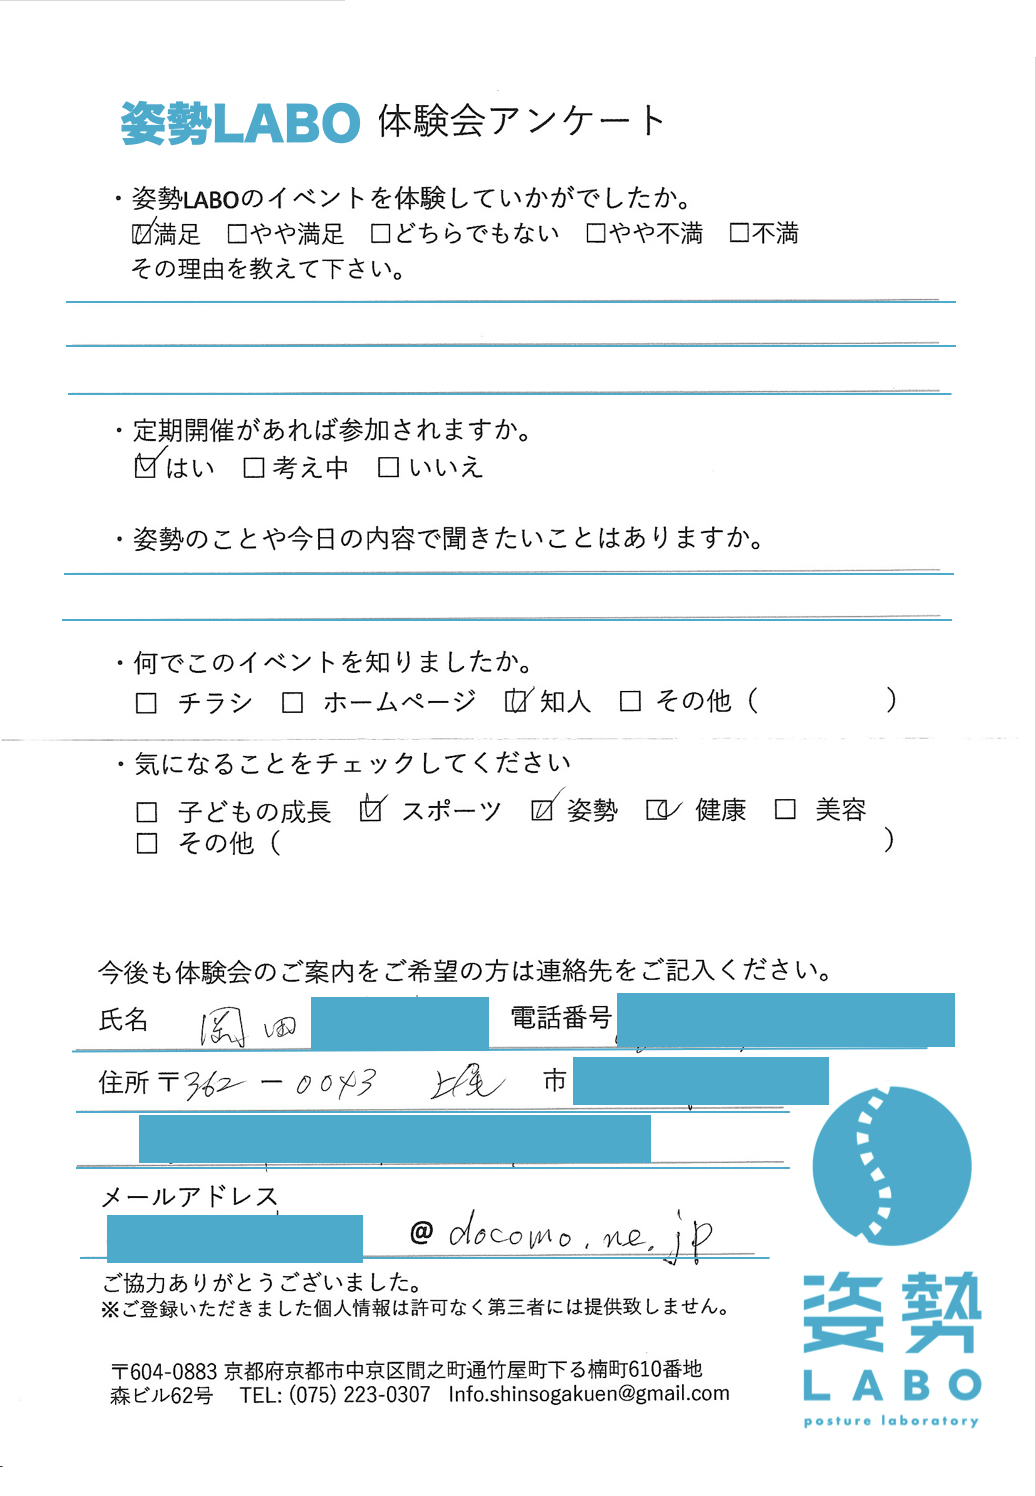 姿勢LABO 体験会アンケート
・姿勢LABOのイベントを体験していかがでしたか。
☑満足 □やや満足 □どちらでもない □やや不満 □不満
その理由を教えて下さい。
・定期開催があれば参加されますか。
☑はい □考え中 □いいえ
・姿勢のことや今日の内容で聞きたいことはありますか。
・何でこのイベントを知りましたか。
□ チラシ □ ホームページ ☑ 知人 □ その他（ ）
・気になることをチェックしてください
□ 子どもの成長 ☑ スポーツ ☑ 姿勢 ☑ 健康 □ 美容
□ その他（ ）
今後も体験会のご案内をご希望の方は連絡先をご記入ください。
氏名 岡田 電話番号
住所〒362-0043 上尾 市
メールアドレス
@ docomo.ne.jp
ご協力ありがとうございました。
※ご登録いただきました個人情報は許可なく第三者には提供致しません。
〒604-0883 京都府京都市中京区間之町通竹屋町下る楠町610番地
森ビル62号 TEL: (075) 223-0307 Info.shinsogakuen@gmail.com
姿勢
LABO
posture laboratory